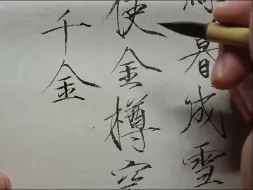 暮成雪
使金樽空
千金